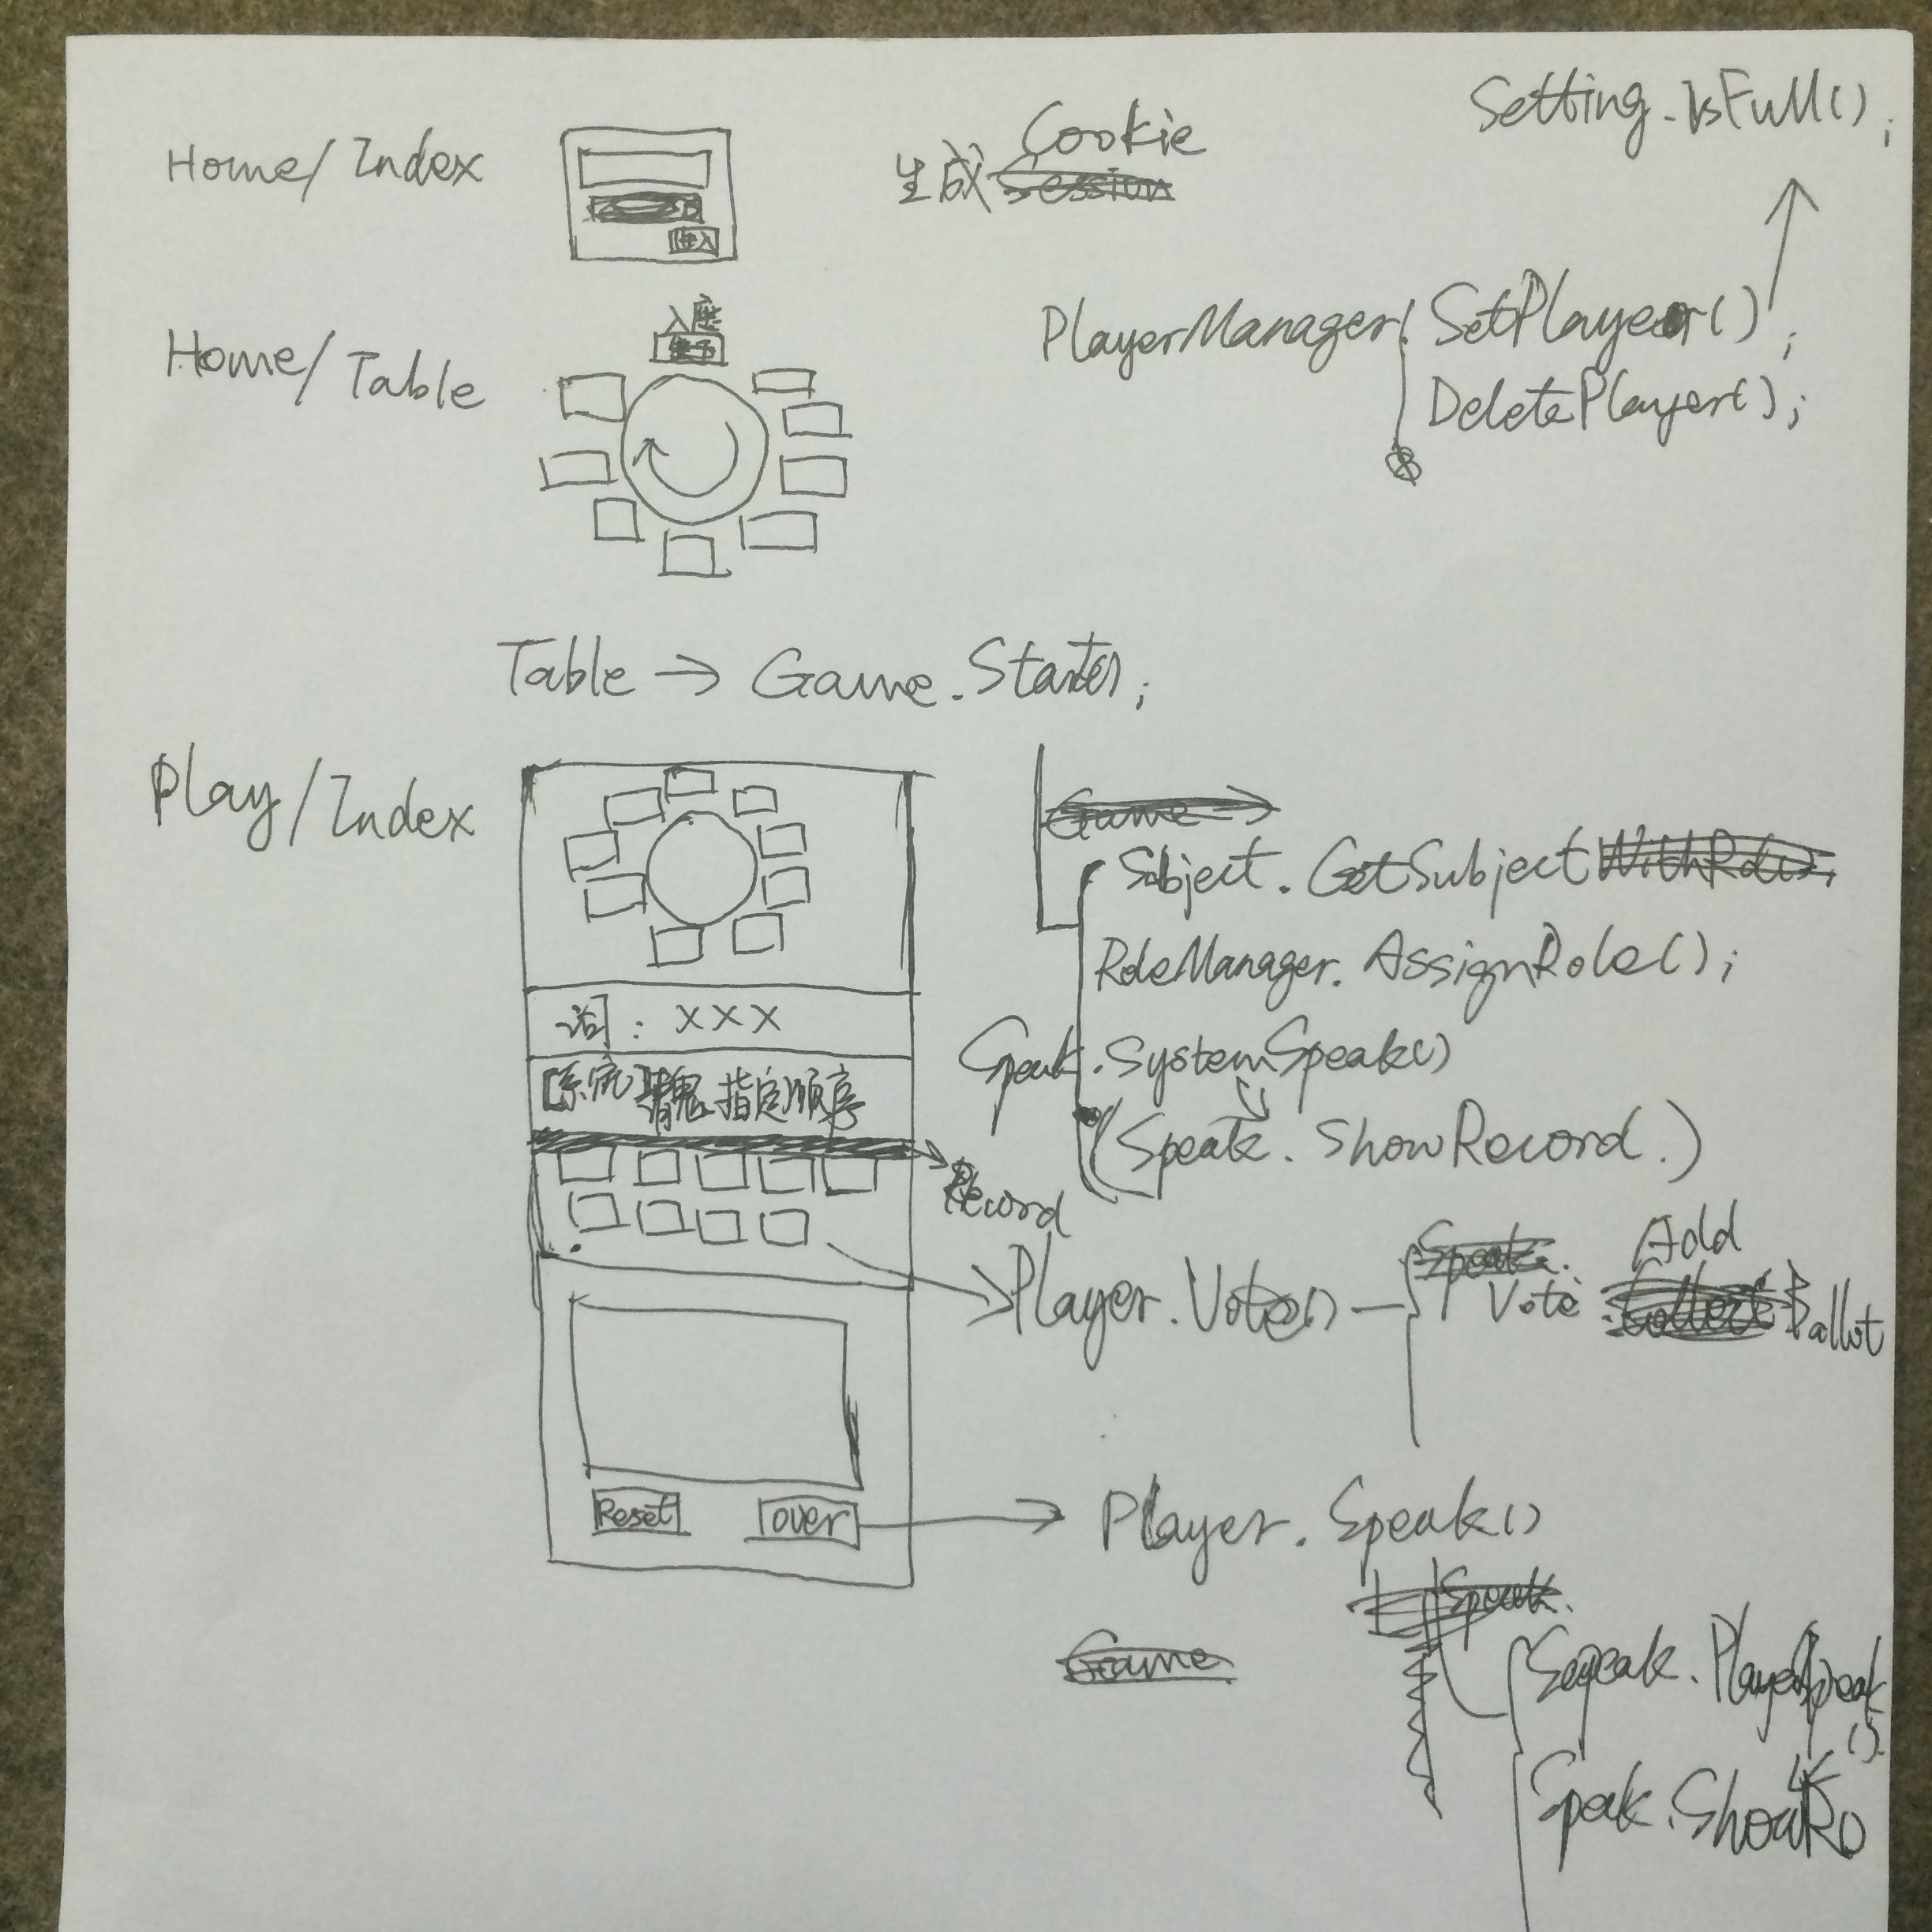 Setting.IsFull();
Home/Index
Cookie
生成 Session
进入
Home/Table
入座
PlayerManager. SetPlayer();
DeletePlayer();
Table → Game.Start();
Play/Index
Game →
Subject.GetSubject WithRole();
RoleManager.AssignRole();
词: XXX
Speak.SystemSpeak()
[系统] 请鬼指定顺序
(Speak.ShowRecord.)
Record
Speak.
Add
Player.Vote() — Vote Collect Ballot
Reset
over
Player.Speak()
Speak.
Game
Speak.PlayerSpeak
();
Speak.ShowR()